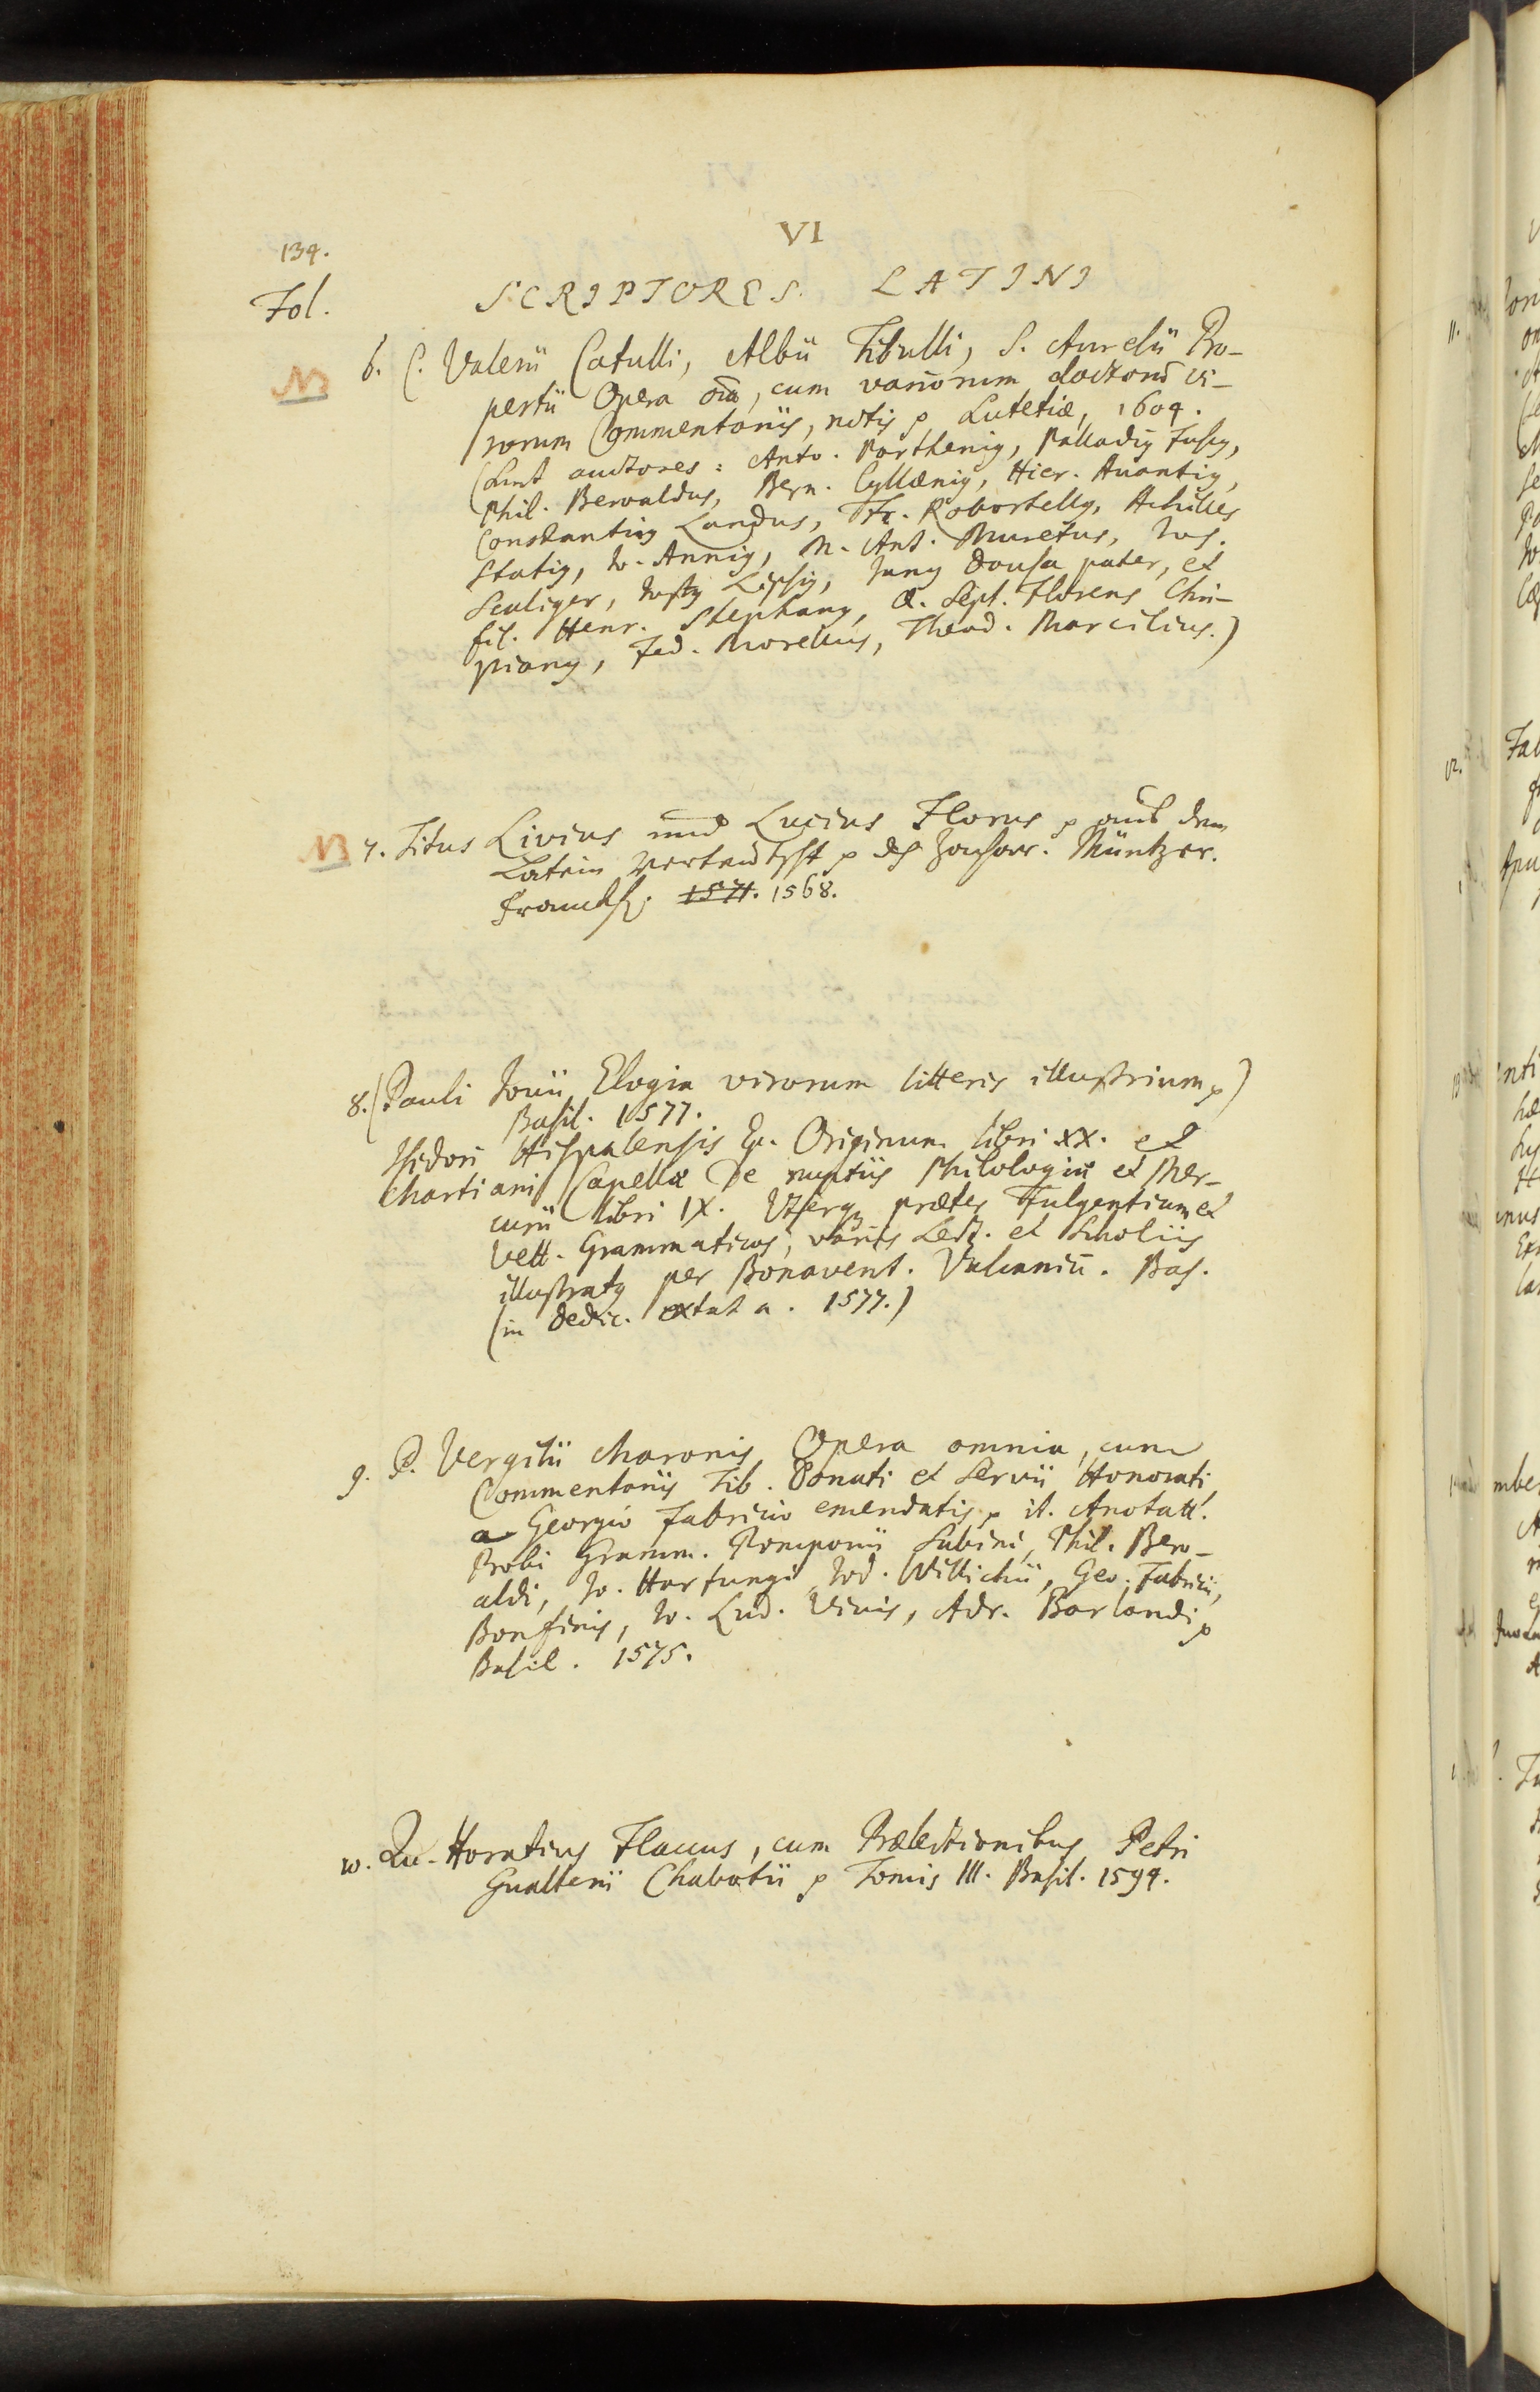 VI
134.
Fol.
SCRIPTORES. LATINI
NB
6. C. Valerii Catulli, Albii Tibulli, S. Aurelii Pro-
pertii Opera o͞ia, cum variorum doctorū vi-
rorum Commentariis, notis p Lutetiæ, 1604.
(Sunt auctores: Anto. Parthenig, Palladig Fusg,
Phil. Beroaldus, Bern. Cyllænig, Hier. Auantig,
Constantiq Landus, Fr. Robortellg, Achilles
Statig, Io. Annig, M. Ant. Muretus, Ios.
Scaliger, Iustg Lipsig, Iang Dousa pater, et
fil. Henr. Stephang, Q. Sept. Florens Chri-
stiang, Fed. Morellus, Theod. Marcilius.)
NB
7. Titus Livius und Lucius Florus p auß dem
Latein verteutscht p dch Zachar. Müntzer.
Franckf. 1571. 1568.
8. (Pauli Iouii Elogia virorum litteris illustrium p)
Basil. 1577.
Isidori Hispalensis Ep. Originum libri XX. et
Martiani Capellæ De nuptiis Philologiæ et Mer-
curii libri IX. Vterq præter Fulgentium et
Vett. Grammaticos, variis Lect. et Scholiis
illustratg per Bonavent. Vulcaniū. Bas.
(in dedic. extat a. 1577.)
9. P. Vergilii Maronis Opera omnia, cum
Commentariis Tib. Donati et Servii Honorati
a Georgio Fabricio emendatis p it. Anotatt.
Probi Gramm. Pomponii Sabini, Phil. Bero-
aldi, Io. Hartungi, Iod. Willichii, Geo. Fabricii,
Bonfinis, Io. Lud. Vivis, Adr. Barlandi p
Basil. 1575.
10. Qu. Horatius Flaccus, cum Prælectionibus Petri
Gualterii Chabotii p Tomis III. Basil. 1594.